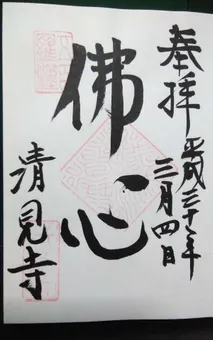 奉拝
平成三十一年
三月四日
佛心
清見寺